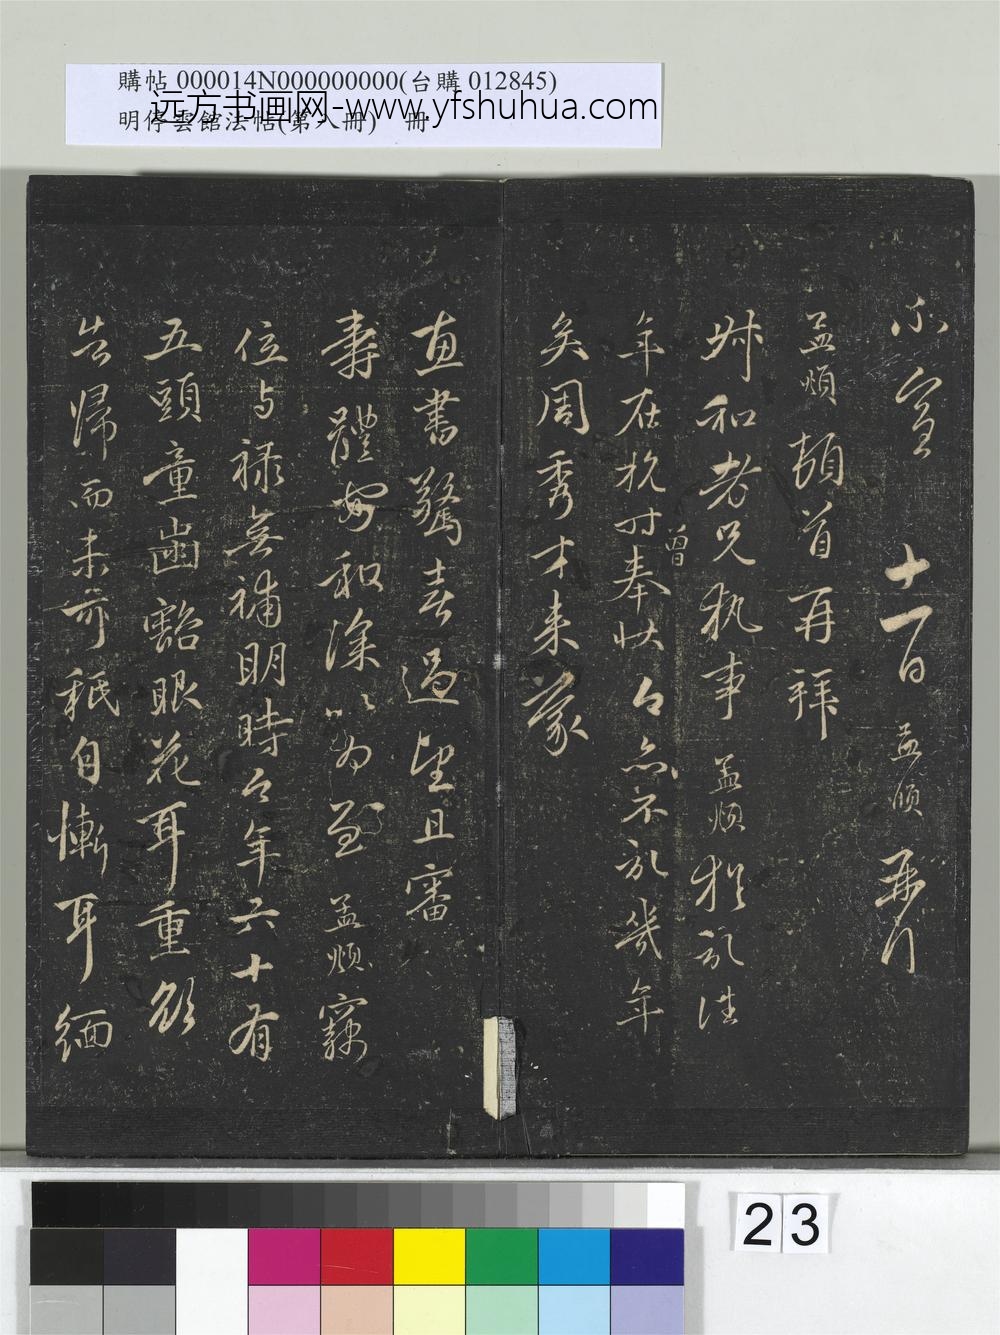 購帖 000014N000000000(台購 012845)
远方书画网-www.yfshuhua.com
明停雲館法帖(第八冊) 冊
不宣 十一日 孟頫再行
孟頫頓首再拜
叔和老兄執事孟頫猶記往
年在杭時曾奉狀今亦不記幾年
矣周秀才來蒙
惠書驚喜過望且審
壽體安和深以為慰孟頫竊
位与禄無補明時今年六十有
五頭童齒豁眼花耳重欲
告歸而未可秖自慚耳緬
23